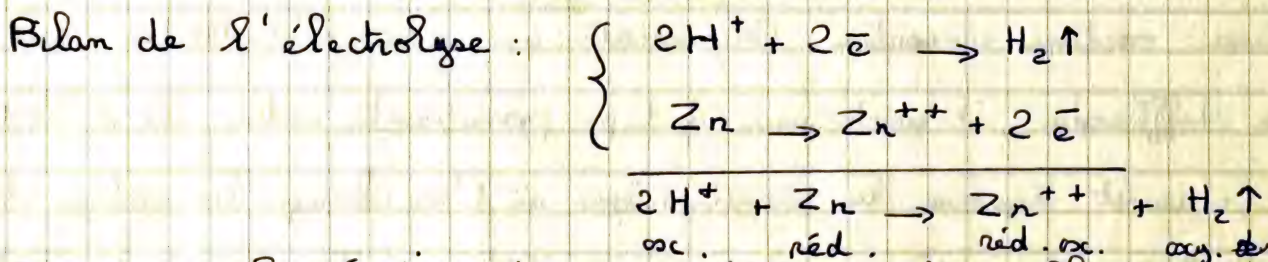 Bilan de l'électrolyse : { 2H⁺ + 2 ē → H₂↑
Zn → Zn⁺⁺ + 2 ē
2H⁺ + Zn → Zn⁺⁺ + H₂↑
réd. réd.